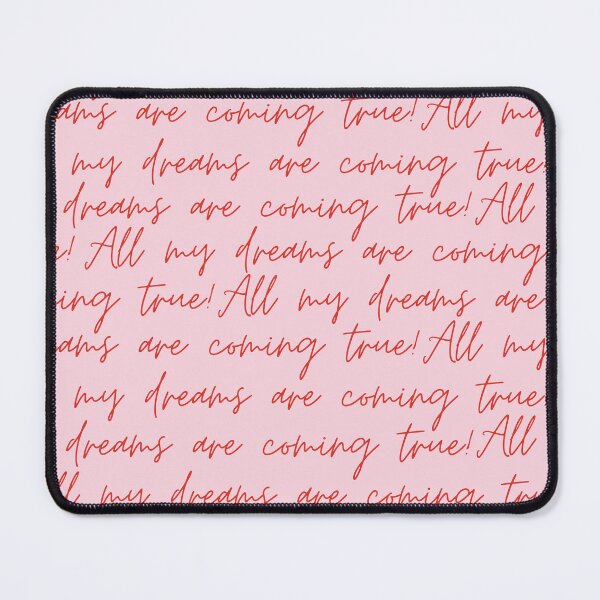 ams are coming true! All my
my dreams are coming true
dreams are coming true! All
e! All my dreams are coming
ing true! All my dreams are
ams are coming true! All my
my dreams are coming true
dreams are coming true! All
ll my dreams are coming tru